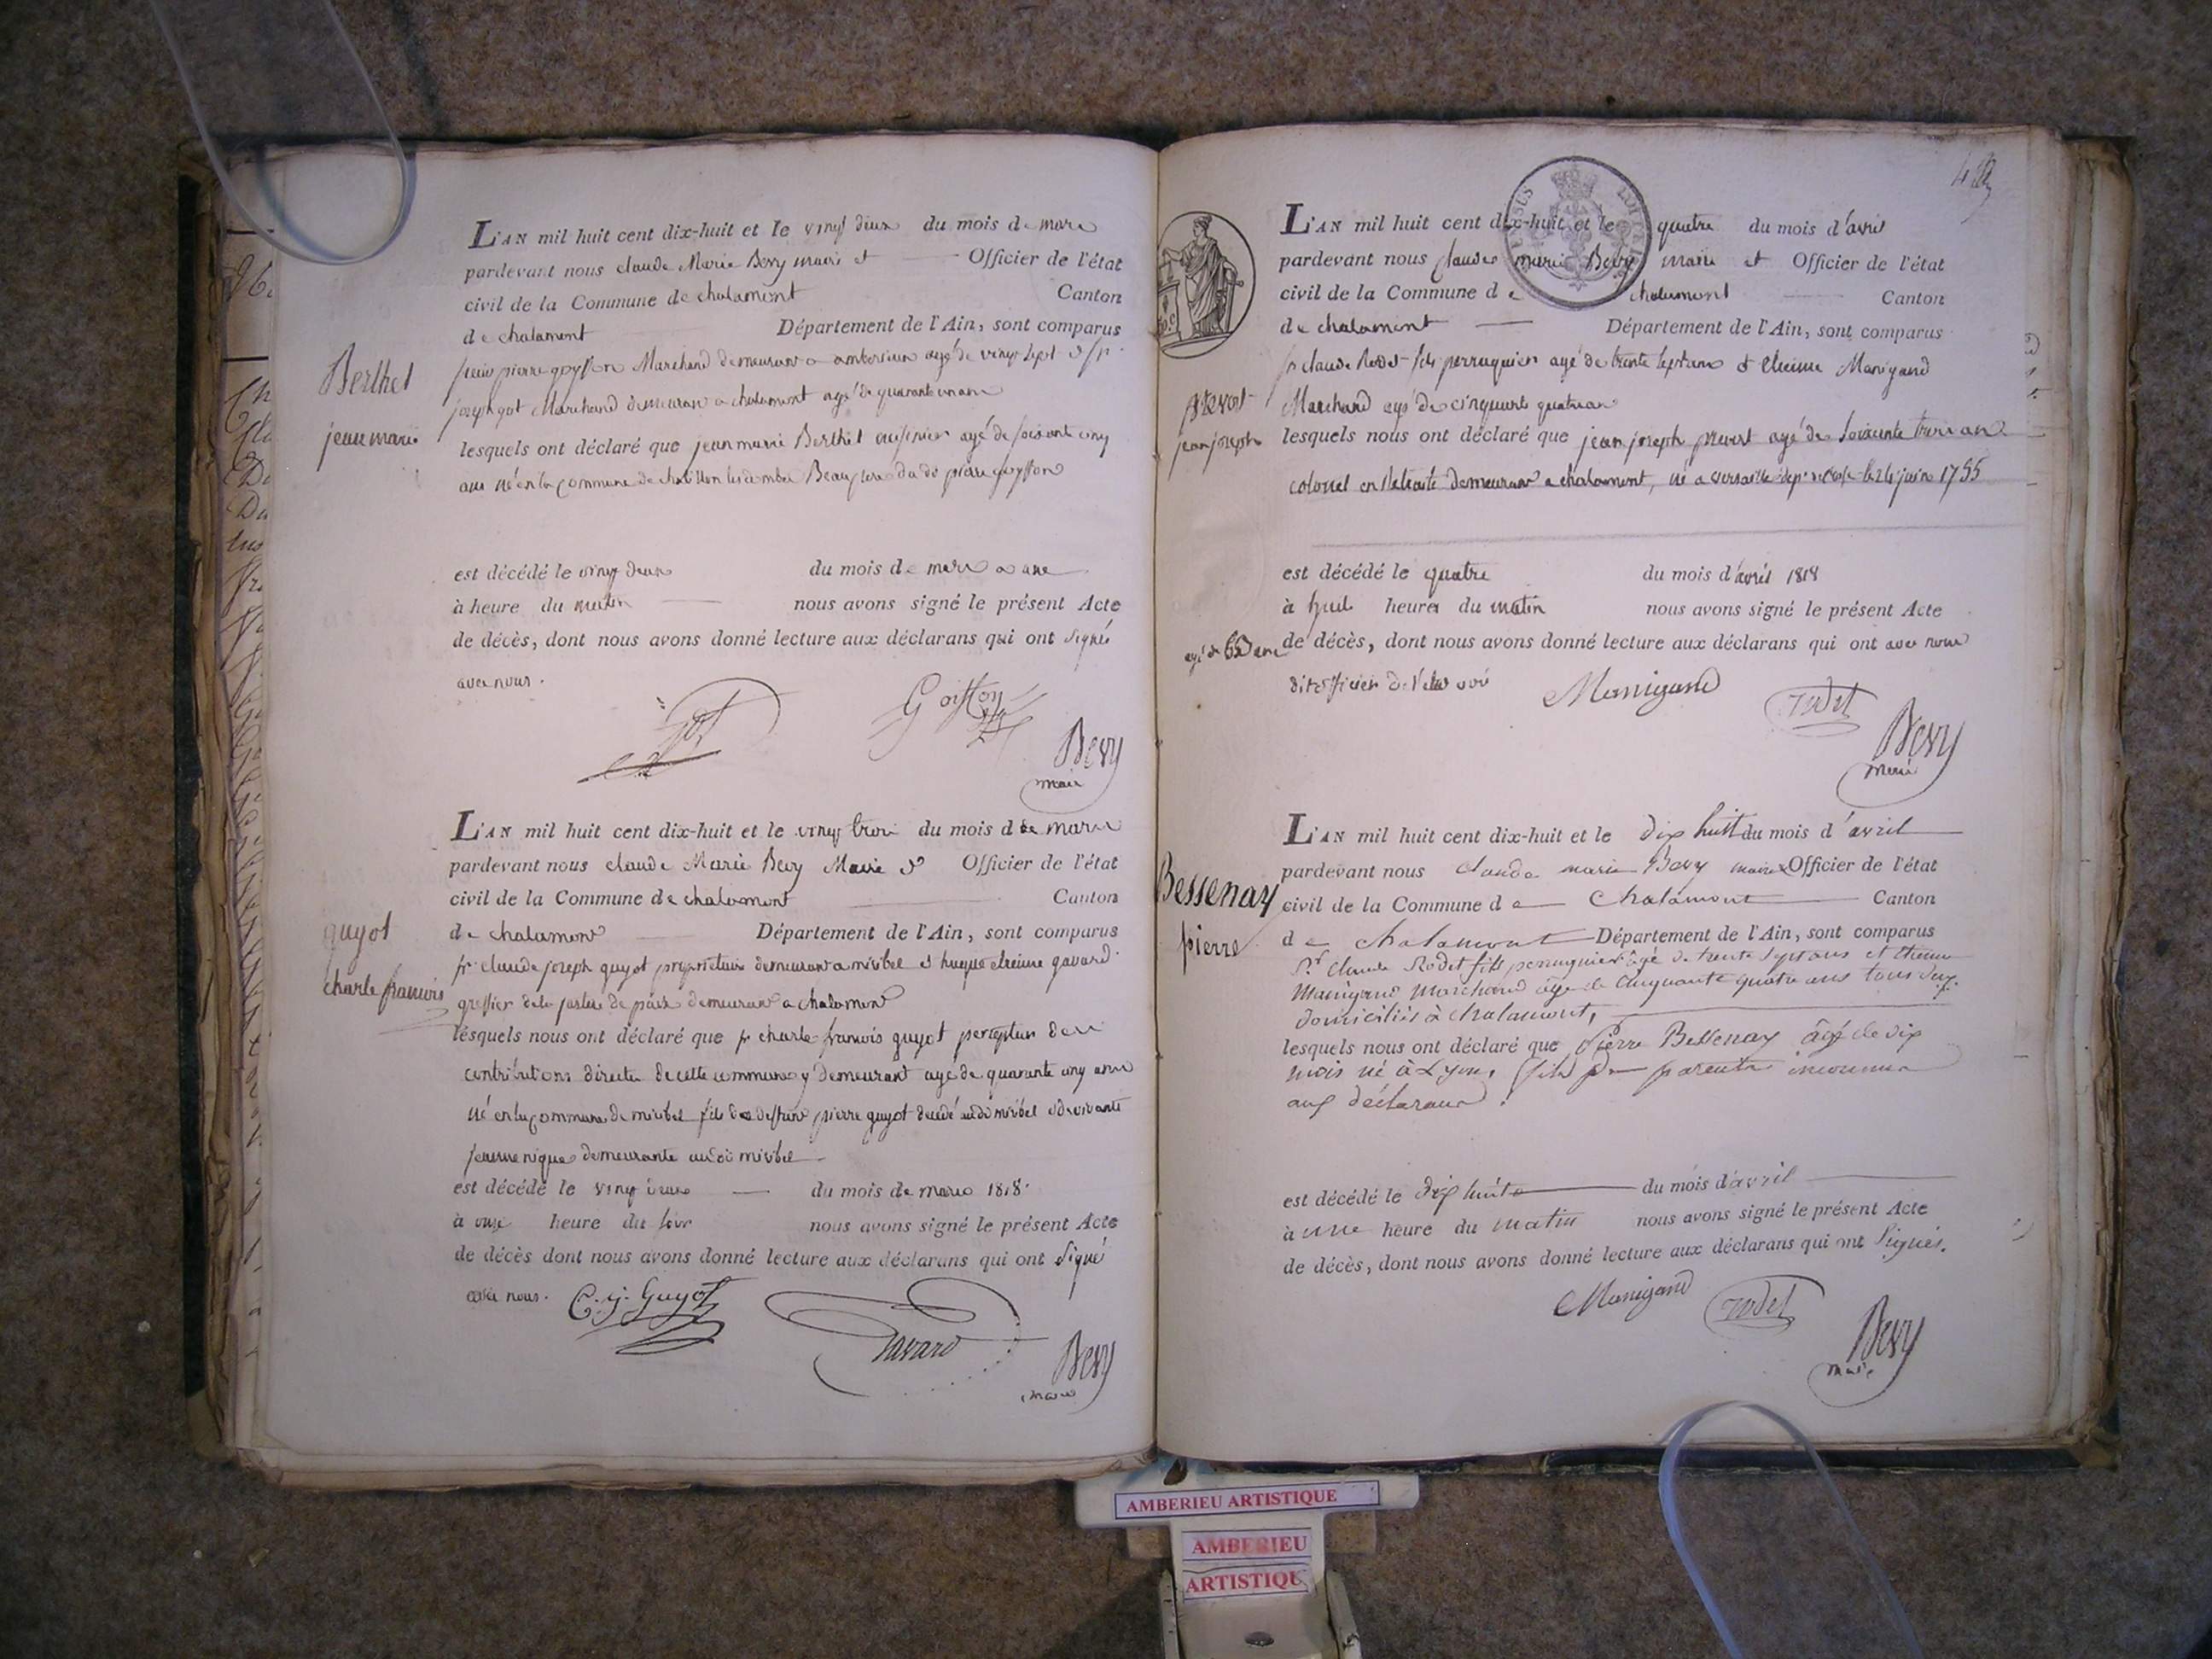 Berthet
jean marie
L'AN mil huit cent dix-huit et le vingt deux du mois de mars
pardevant nous claude Marie Bevy maire et Officier de l'état
civil de la Commune de chalamont Canton
de chalamont Département de l'Ain, sont comparus
pierre goyffon Marchand demeurant a amberieux agé de vingt sept
joseph got Marchand demeurant a chalamont agé de quarante un ans
lesquels ont déclaré que jean marie Berthet cuisinier agé de soixante cinq
ans né en la commune de chatillon les dombes Beau pere du dt pierre goyffon
est décédé le vingt deux du mois de mars a une
à heure du matin nous avons signé le présent Acte
de décès, dont nous avons donné lecture aux déclarans qui ont signé
avec nous.
got Goiffon
Bevy
maire
guyot
charle francois
L'AN mil huit cent dix-huit et le vingt trois du mois de mars
pardevant nous claude Marie Bevy Maire et Officier de l'état
civil de la Commune de chalamont Canton
de chalamont Département de l'Ain, sont comparus
sr claude joseph guyot propriétaire demeurant a miribel et hugue etienne gavard
greffier de la justice de paix demeurant a chalamont
lesquels nous ont déclaré que sr charle francois guyot percepteur des
contributions directe de cette commune y demeurant agé de quarante cinq ans
né en la commune de miribel fils de defunt pierre guyot décédé audt miribel et de vivante
demeurante audit miribel
est décédé le vingt deux du mois de mars 1818.
à onze heure du soir nous avons signé le présent Acte
de décès dont nous avons donné lecture aux déclarans qui ont signé
avec nous. C. j. Guyot
Gavard
Bevy
maire
L'AN mil huit cent dix-huit et le quatre du mois d'avril
pardevant nous claude marie Bevy maire et Officier de l'état
civil de la Commune de chalamont Canton
de chalamont Département de l'Ain, sont comparus
sr claude Rodet fils perruquier agé de trente sept ans et etienne Manigand
Marchand agé de cinquante quatre ans
prevost
jean joseph
lesquels nous ont déclaré que jean joseph prevost agé de soixante trois ans
colonel en retraite demeurant a chalamont, né a versaille le 24 juin 1755
est décédé le quatre du mois d'avril 1818
à huit heures du matin nous avons signé le présent Acte
agé de 63 ans
de décès, dont nous avons donné lecture aux déclarans qui ont avec nous
dit officier
Manigand Rodet
Bevy
maire
L'AN mil huit cent dix-huit et le dix huit du mois d'avril
pardevant nous claude marie Bevy maire et Officier de l'état
Bessenay
pierre
civil de la Commune de Chalamont Canton
de chalamont Département de l'Ain, sont comparus
Sr. Claude Rodet fils perruquier âgé de trente sept ans et etienne
Manigand Marchand âgé de cinquante quatre ans tous deux
domiciliés à chalamont,
lesquels nous ont déclaré que Pierre Bessenay âgé de dix
mois né à Lyon, fils de parents inconnus
aux déclarans.
est décédé le dix huit du mois d'avril
à une heure du matin nous avons signé le présent Acte
de décès, dont nous avons donné lecture aux déclarans qui ont signés.
Manigand Rodet
Bevy
maire
AMBERIEU ARTISTIQUE
AMBERIEU
ARTISTIQUE